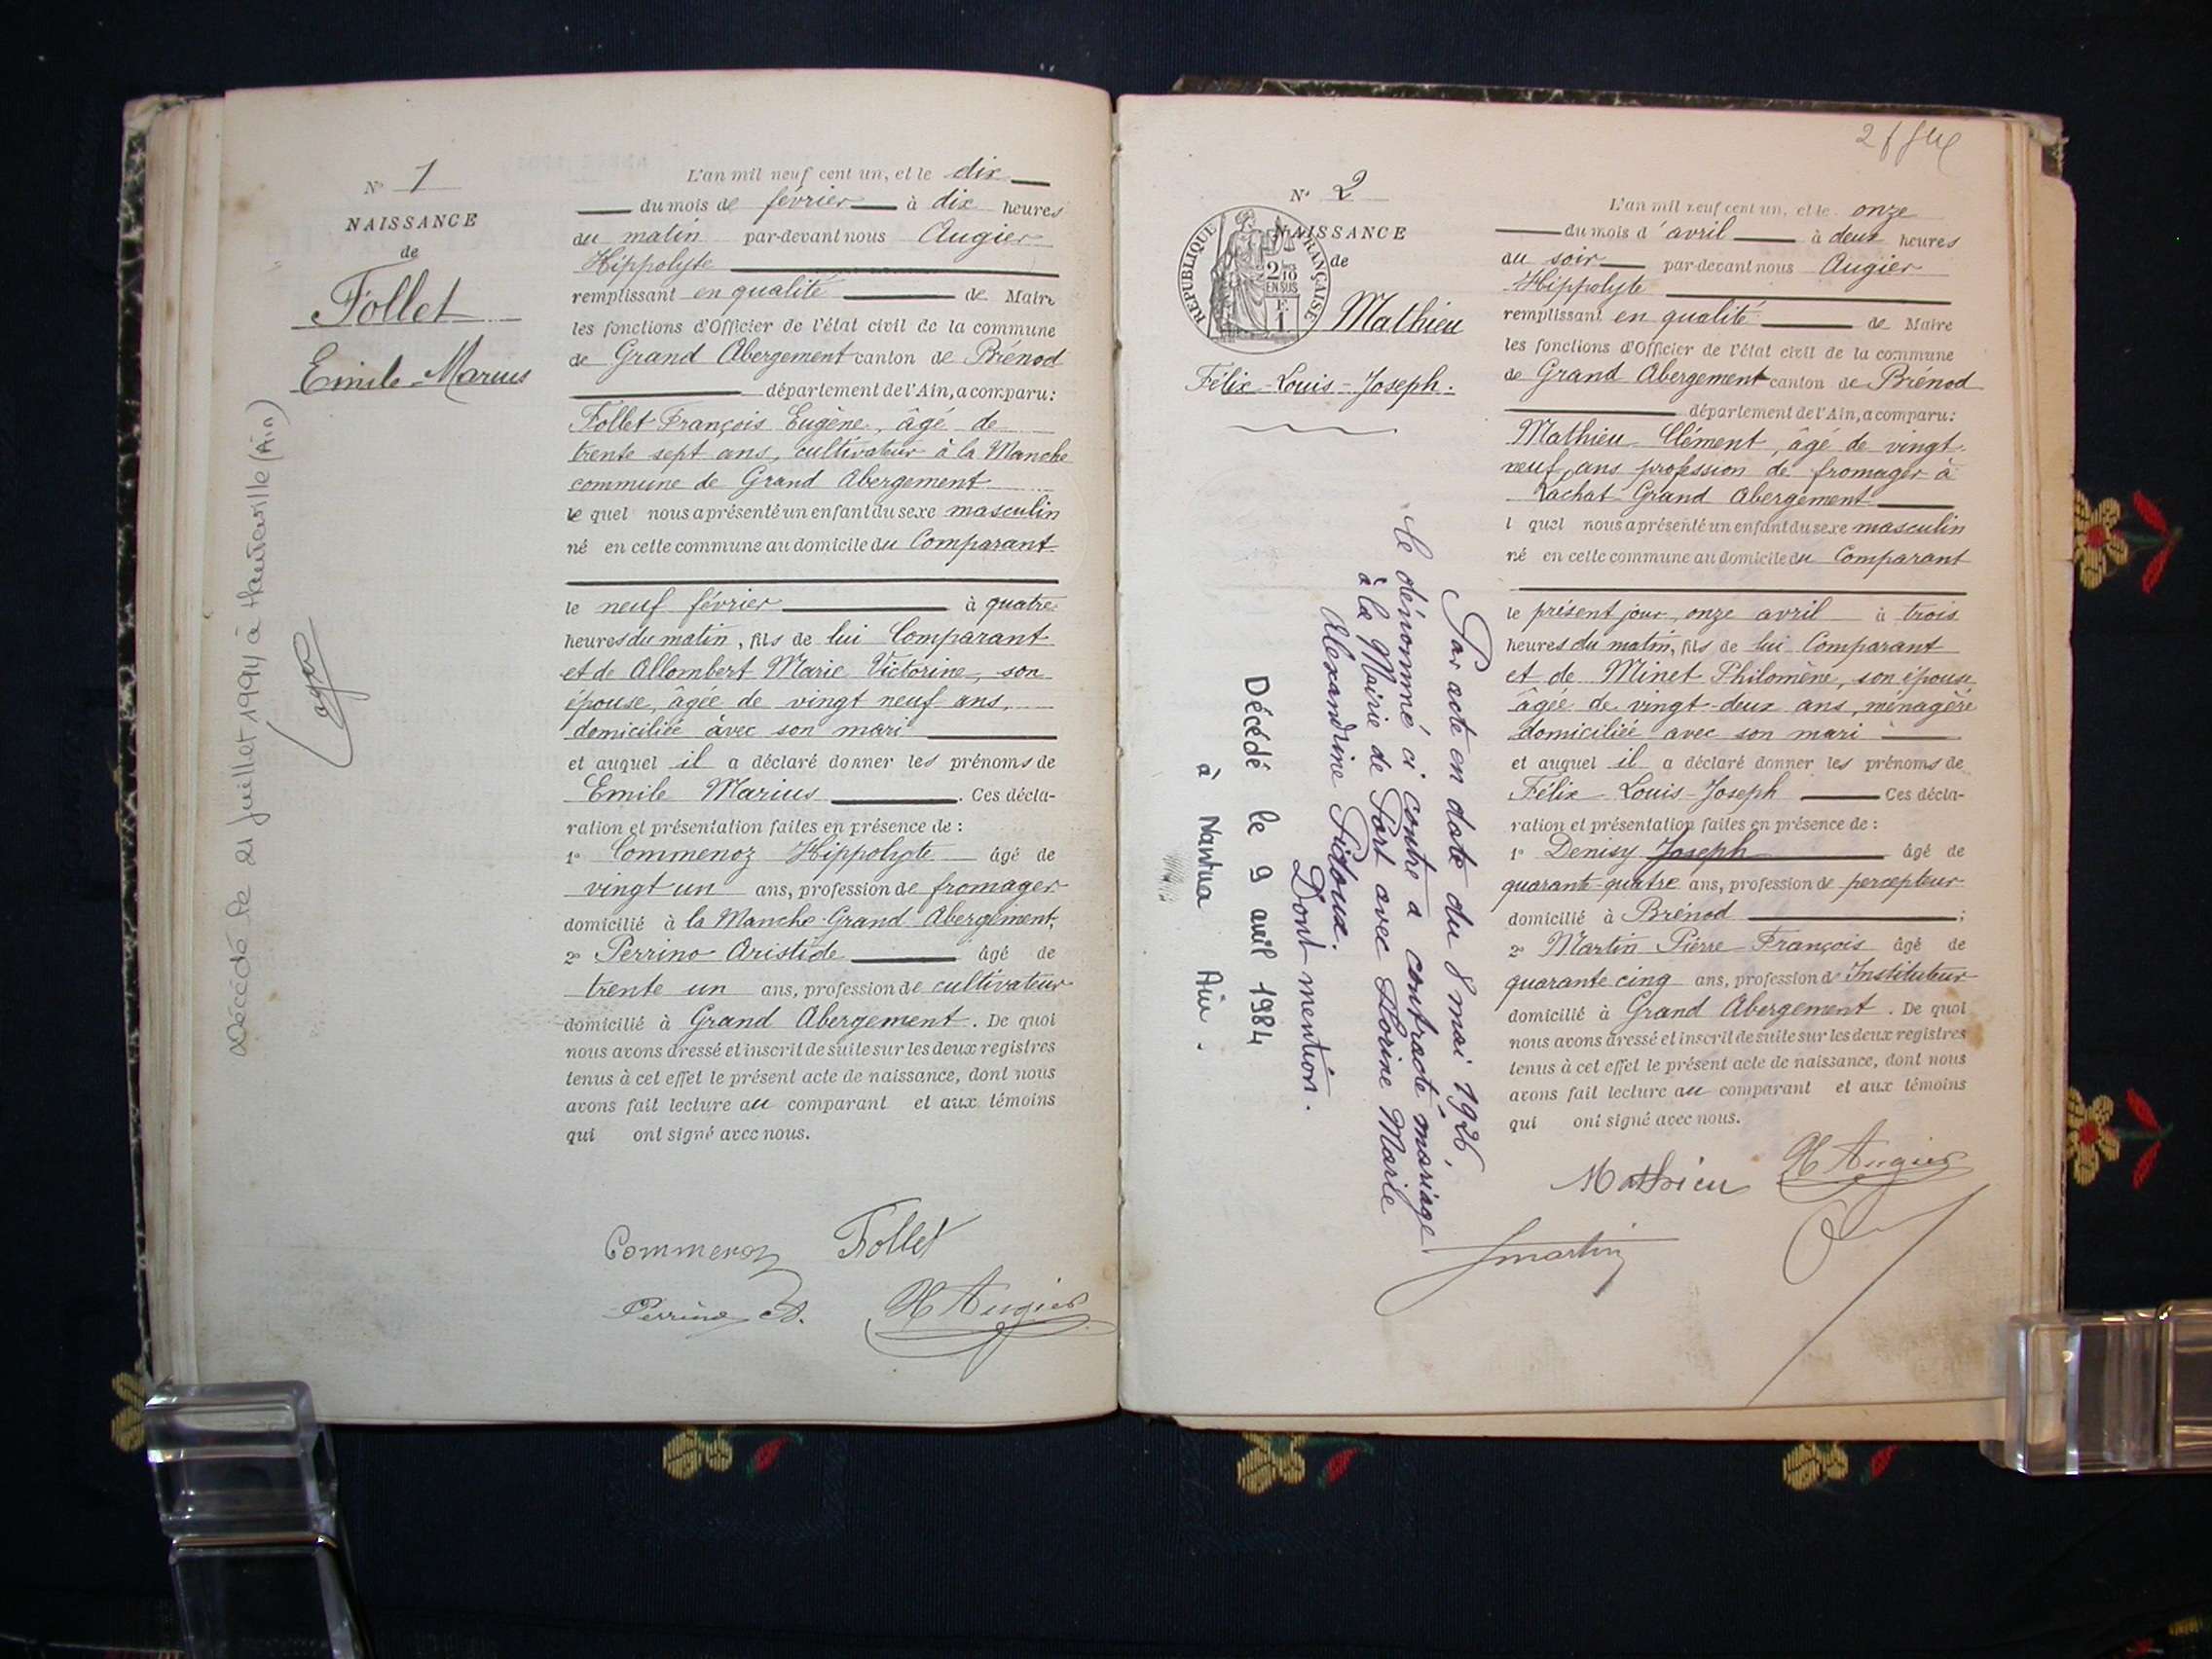 N° 1
NAISSANCE
de
Follet
Emile-Marius
Décédé le 21 juillet 1994 à Hauteville (Ain)
L'an mil neuf cent un, et le dix
du mois de février à dix heures
du matin par-devant nous Augier
Hippolyte
remplissant en qualité de Maire
les fonctions d'Officier de l'état civil de la commune
de Grand Abergement canton de Brénod
département de l'Ain, a comparu:
Follet François Eugène, âgé de
trente sept ans, cultivateur à la Manche
commune de Grand Abergement
le quel nous a présenté un enfant du sexe masculin
né en cette commune au domicile du Comparant
le neuf février à quatre
heures du matin, fils de lui Comparant
et de Allombert Marie Victorine, son
épouse, âgée de vingt neuf ans,
domiciliée avec son mari
et auquel il a déclaré donner les prénoms de
Emile Marius . Ces décla-
ration et présentation faites en présence de :
1° Commenoz Hippolyte âgé de
vingt un ans, profession de fromager
domicilié à la Manche-Grand Abergement,
2° Perrino Aristide âgé de
trente un ans, profession de cultivateur
domicilié à Grand Abergement. De quoi
nous avons dressé et inscrit de suite sur les deux registres
tenus à cet effet le présent acte de naissance, dont nous
avons fait lecture au comparant et aux témoins
qui ont signé avec nous.
Commenoz Follet
Perrino A. H Augier
N° 2
NAISSANCE
de
REPUBLIQUE FRANÇAISE
2/10
EN SUS
Mathieu
Félix-Louis-Joseph.
Par acte en date du 8 mai 1926,
le dénommé ci contre a contracté mariage
à la Mairie de Port avec Florine Marie
Alexandrine Pidoux.
Dont mention.
Décédé le 9 avril 1984
à Nantua Ain.
L'an mil neuf cent un, et le onze
du mois d'avril à deux heures
du soir par-devant nous Augier
Hippolyte
remplissant en qualité de Maire
les fonctions d'Officier de l'état civil de la commune
de Grand Abergement canton de Brénod
département de l'Ain, a comparu:
Mathieu Clément, âgé de vingt
neuf ans profession de fromager à
Lachat Grand Abergement
l quel nous a présenté un enfant du sexe masculin
né en cette commune au domicile du Comparant
le présent jour, onze avril à trois
heures du matin, fils de lui Comparant
et de Minet Philomène, son épouse
âgée de vingt-deux ans, ménagère
domiciliée avec son mari
et auquel il a déclaré donner les prénoms de
Félix Louis-Joseph Ces décla-
ration et présentation faites en présence de :
1° Denisy Joseph âgé de
quarante-quatre ans, profession de percepteur
domicilié à Brénod ;
2° Martin Pierre François âgé de
quarante cinq ans, profession d'Instituteur
domicilié à Grand Abergement. De quoi
nous avons dressé et inscrit de suite sur les deux registres
tenus à cet effet le présent acte de naissance, dont nous
avons fait lecture au comparant et aux témoins
qui ont signé avec nous.
Mathieu H Augier
Martin